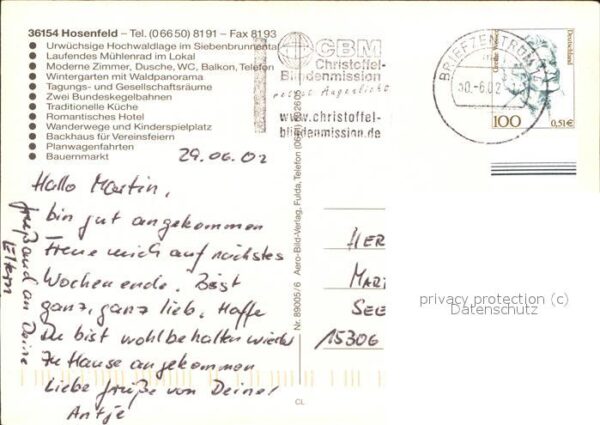 36154 Hosenfeld – Tel. (0 66 50) 81 91 – Fax 81 93
● Urwüchsige Hochwaldlage im Siebenbrunnental
● Laufendes Mühlenrad im Lokal
● Moderne Zimmer, Dusche, WC, Balkon, Telefon
● Wintergarten mit Waldpanorama
● Tagungs- und Gesellschaftsräume
● Zwei Bundeskegelbahnen
● Traditionelle Küche
● Romantisches Hotel
● Wanderwege und Kinderspielplatz
● Backhaus für Vereinsfeiern
● Planwagenfahrten
● Bauernmarkt
29.06.02
Hallo Martin,
bin gut angekommen
Freue mich auf nächstes
Wochenende. Bist
ganz, ganz lieb. Hoffe
Du bist wohlbehalten wieder
zu Hause angekommen
Liebe Grüße von Deiner
Antje
Gruß and an Deine
Eltern
Nr. 89005/6 Aero-Bild-Verlag, Fulda, Telefon
CL
CBM
Christoffel-
Blindenmission
rettet Augenlicht
www.christoffel-
blindenmission.de
BRIEFZENTRUM
30.-6.02
Deutschland
100
0,51€
HER
MART
SEE
15306
privacy protection (c)
Datenschutz